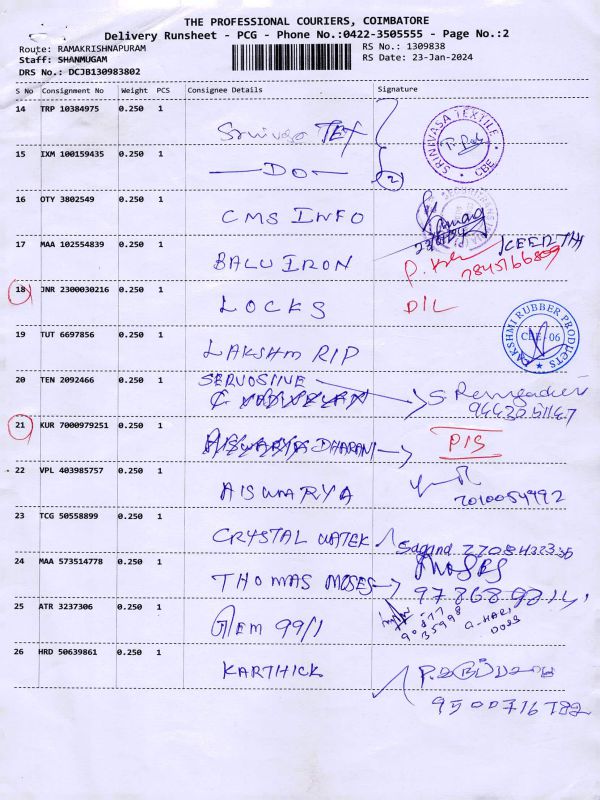 THE PROFESSIONAL COURIERS, COIMBATORE
Delivery Runsheet - PCG - Phone No.:0422-3505555 - Page No.:2
Route: RAMAKRISHNAPURAM
RS No.: 1309838
Staff: SHANMUGAM
RS Date: 23-Jan-2024
DRS No.: DCJB130983802
S No Consignment No Weight PCS Consignee Details Signature
14 TRP 10384975 0.250 1 Srinivasa TEX
SRINIVASA TEXTILE CBE
15 IXM 100159435 0.250 1 —DO— 2
16 OTY 3802549 0.250 1 CMS INFO
17 MAA 102554839 0.250 1 BALU IRON KEERTHI
18 JNR 2300030216 0.250 1 LOCKS DIL
19 TUT 6697856 0.250 1 LAKSHMI RIP
LAKSHMI RUBBER PRODUCTS CBE - 06
20 TEN 2092466 0.250 1 SERVOSTIVE
21 KUR 7000979251 0.250 1 DHARANI PIS
22 VPL 403985757 0.250 1 AISWARYA 7010054992
23 TCG 50558899 0.250 1 CRYSTAL WATER
24 MAA 573514778 0.250 1 THOMAS MOSES MOSES
25 ATR 3237306 0.250 1 GEM 99/1 G. HARI DOSS
26 HRD 50639861 0.250 1 KARTHICK
9500716782